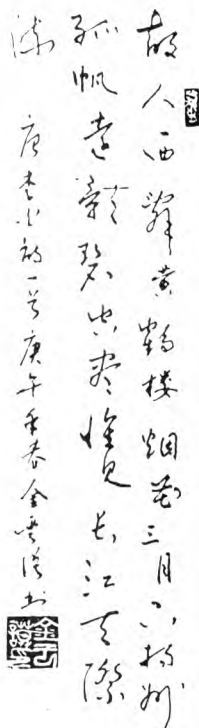 故人西辞黄鹤楼烟花三月下扬州
孤帆远影碧空尽惟见长江天际
流
唐李白诗一首庚午年春金